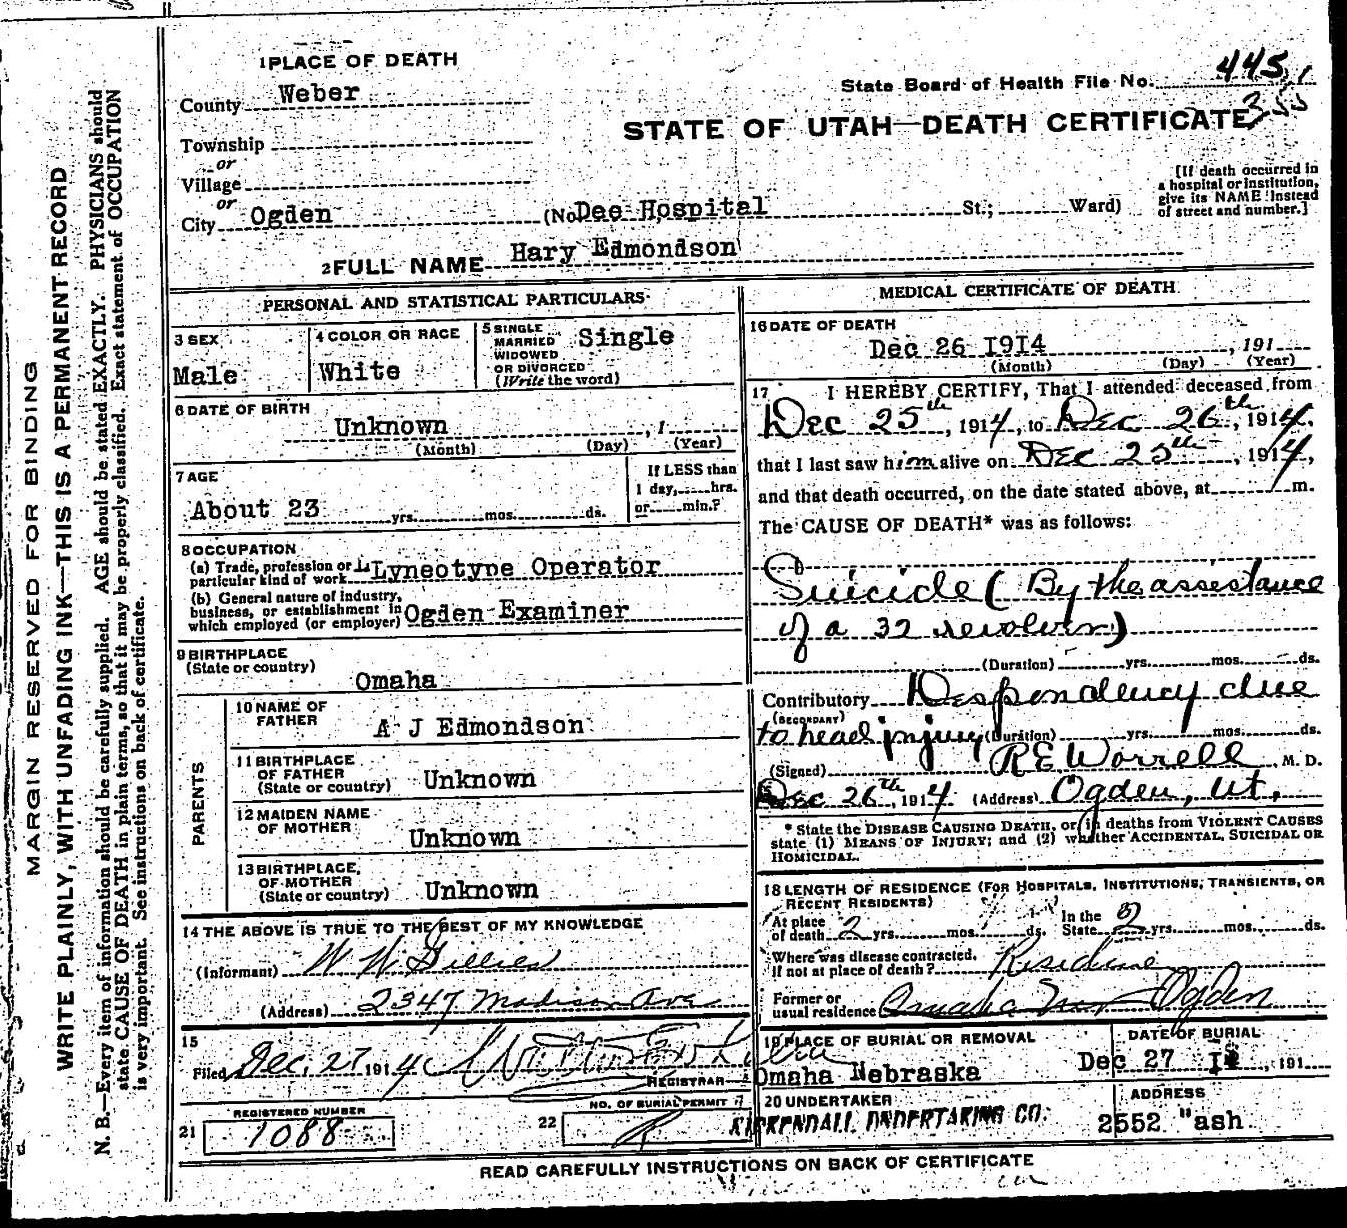 1 PLACE OF DEATH
County Weber
Township
or
Village
or
City Ogden (No Dee Hospital St.; Ward)
State Board of Health File No. 445
STATE OF UTAH—DEATH CERTIFICATE
[If death occurred in
a hospital or institution,
give its NAME instead
of street and number.]
2 FULL NAME Hary Edmondson
PERSONAL AND STATISTICAL PARTICULARS
3 SEX
Male
4 COLOR OR RACE
White
5 SINGLE
MARRIED
WIDOWED
OR DIVORCED
(Write the word)
Single
6 DATE OF BIRTH
Unknown , 1
(Month) (Day) (Year)
7 AGE
About 23 yrs. mos. ds.
If LESS than
1 day, hrs.
or min.?
8 OCCUPATION
(a) Trade, profession or
particular kind of work Lyneotype Operator
(b) General nature of industry,
business, or establishment in
which employed (or employer) Ogden Examiner
9 BIRTHPLACE
(State or country)
Omaha
PARENTS
10 NAME OF
FATHER
A J Edmondson
11 BIRTHPLACE
OF FATHER
(State or country) Unknown
12 MAIDEN NAME
OF MOTHER
Unknown
13 BIRTHPLACE
OF MOTHER
(State or country) Unknown
14 THE ABOVE IS TRUE TO THE BEST OF MY KNOWLEDGE
(Informant) W W Gillies
(Address) 2347 Madison Ave
15
Filed Dec. 27 1914
REGISTRAR
REGISTERED NUMBER
21 1088
NO. OF BURIAL PERMIT
22
MEDICAL CERTIFICATE OF DEATH
16 DATE OF DEATH
Dec 26 I9I4 , 191
(Month) (Day) (Year)
17 I HEREBY CERTIFY, That I attended deceased from
Dec 25th, 1914, to Dec 26th, 1914,
that I last saw him alive on Dec 25th, 1914,
and that death occurred, on the date stated above, at m.
The CAUSE OF DEATH* was as follows:
Suicide (By the assistance
of a 32 revolver)
(Duration) yrs. mos. ds.
Contributory Despondency due
(SECONDARY)
to head injury (Duration) yrs. mos. ds.
(Signed) R E Worrell M. D.
Dec 26th, 1914 (Address) Ogden, Ut,
* State the DISEASE CAUSING DEATH, or, in deaths from VIOLENT CAUSES
state (1) MEANS OF INJURY; and (2) whether ACCIDENTAL, SUICIDAL OR
HOMICIDAL.
18 LENGTH OF RESIDENCE (FOR HOSPITALS, INSTITUTIONS, TRANSIENTS, OR
RECENT RESIDENTS)
At place
of death 2 yrs. mos. ds. In the
State 2 yrs. mos. ds.
Where was disease contracted,
If not at place of death?
Former or
usual residence Omaha Ogden
19 PLACE OF BURIAL OR REMOVAL
Omaha Nebraska
DATE OF BURIAL
Dec 27 , 191
20 UNDERTAKER
KIRKENDALL UNDERTAKING CO.
ADDRESS
2552 "ash
READ CAREFULLY INSTRUCTIONS ON BACK OF CERTIFICATE
MARGIN RESERVED FOR BINDING
WRITE PLAINLY, WITH UNFADING INK—THIS IS A PERMANENT RECORD
N. B.—Every item of information should be carefully supplied. AGE should be stated EXACTLY. PHYSICIANS should
state CAUSE OF DEATH in plain terms, so that it may be properly classified. Exact statement of OCCUPATION
is very important. See instructions on back of certificate.